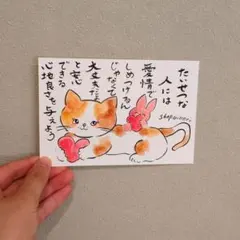 たいせつな
人には
愛情で
しめつけるん
じゃなくて
大丈夫だよ
と安心
できる
心地良さを与えよう